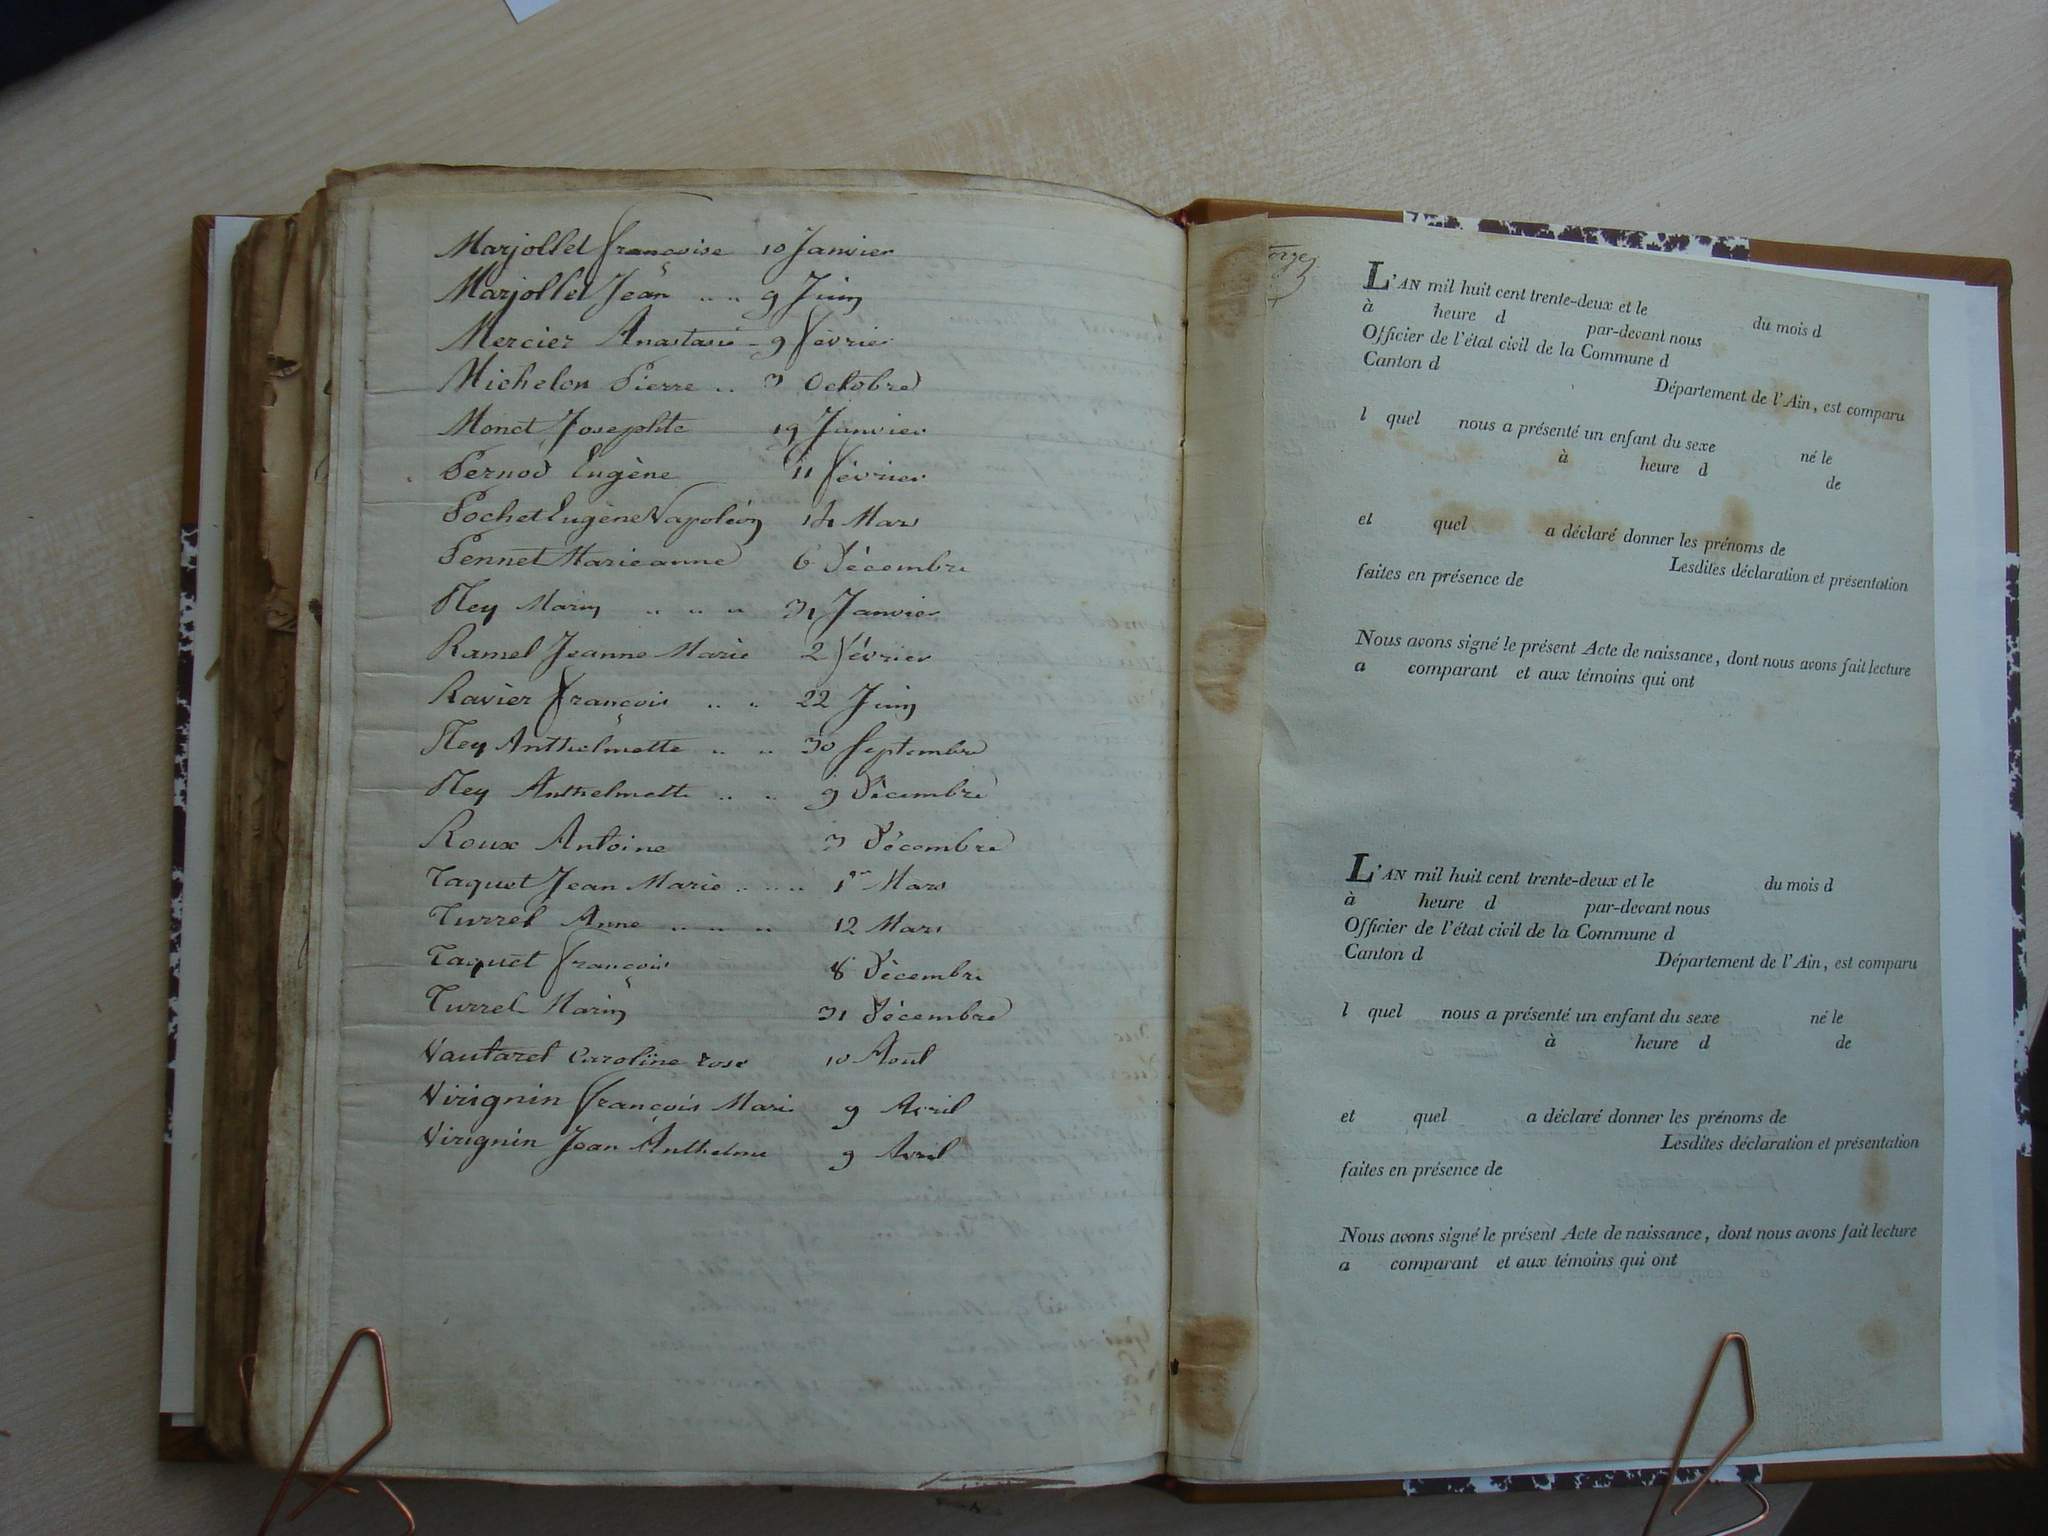 Marjollet françoise 10 Janvier
Marjollet Jean .. .. 9 Juin
Mercier Anastasie - 9 février
Michelon Pierre .. 3 Octobre
Monet Josephte 19 Janvier
Pernod Eugène 11 février
Pochet Eugène Napoléon 14 Mars
Pennet Marieanne 6 Décembre
Rey Marin .. .. .. 31 Janvier
Ramel Jeanne Marie 2 février
Ravier françois .. .. 22 Juin
Rey Anthelmette .. .. 30 Septembre
Rey Anthelmette .. .. 9 Décembre
Roux Antoine 3 Décembre
Taquet Jean Marie .. .. .. 1er Mars
Turrel Anne .. .. .. 12 Mars
Taquet françois 8 Décembre
Turrel Marin 31 Décembre
Vautaret Caroline rose 10 Aout
Virignin françois Marie 9 Avril
Virignin Jean Anthelme 9 Avril
L'AN mil huit cent trente-deux et le du mois d
à heure d par-devant nous
Officier de l'état civil de la Commune d
Canton d Département de l'Ain, est comparu
l quel nous a présenté un enfant du sexe né le
à heure d de
et quel a déclaré donner les prénoms de
Lesdites déclaration et présentation
faites en présence de
Nous avons signé le présent Acte de naissance, dont nous avons fait lecture
a comparant et aux témoins qui ont
L'AN mil huit cent trente-deux et le du mois d
à heure d par-devant nous
Officier de l'état civil de la Commune d
Canton d Département de l'Ain, est comparu
l quel nous a présenté un enfant du sexe né le
à heure d de
et quel a déclaré donner les prénoms de
Lesdites déclaration et présentation
faites en présence de
Nous avons signé le présent Acte de naissance, dont nous avons fait lecture
a comparant et aux témoins qui ont